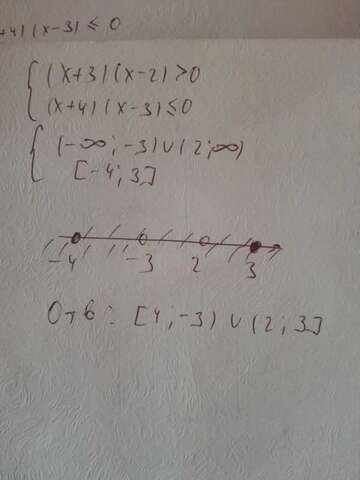 +4)(x-3)≤0
(x+3)(x-2)>0
(x+4)(x-3)≤0
(-∞;-3)∪(2;∞)
[-4;3]
-4 -3 2 3
Отв: [4;-3)∪(2;3]